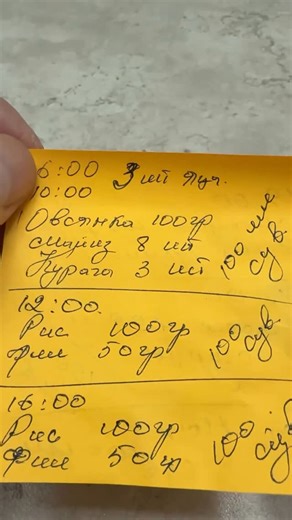 6:00 3 шт яца.
10:00
Овсянка 100гр
майиз 8 шт
Курага 3 шт
100 мле сув.
12:00.
Рис 100гр
Филе 50гр
100 сув.
16:00
Рис 100гр
Филе 50гр
100 сув